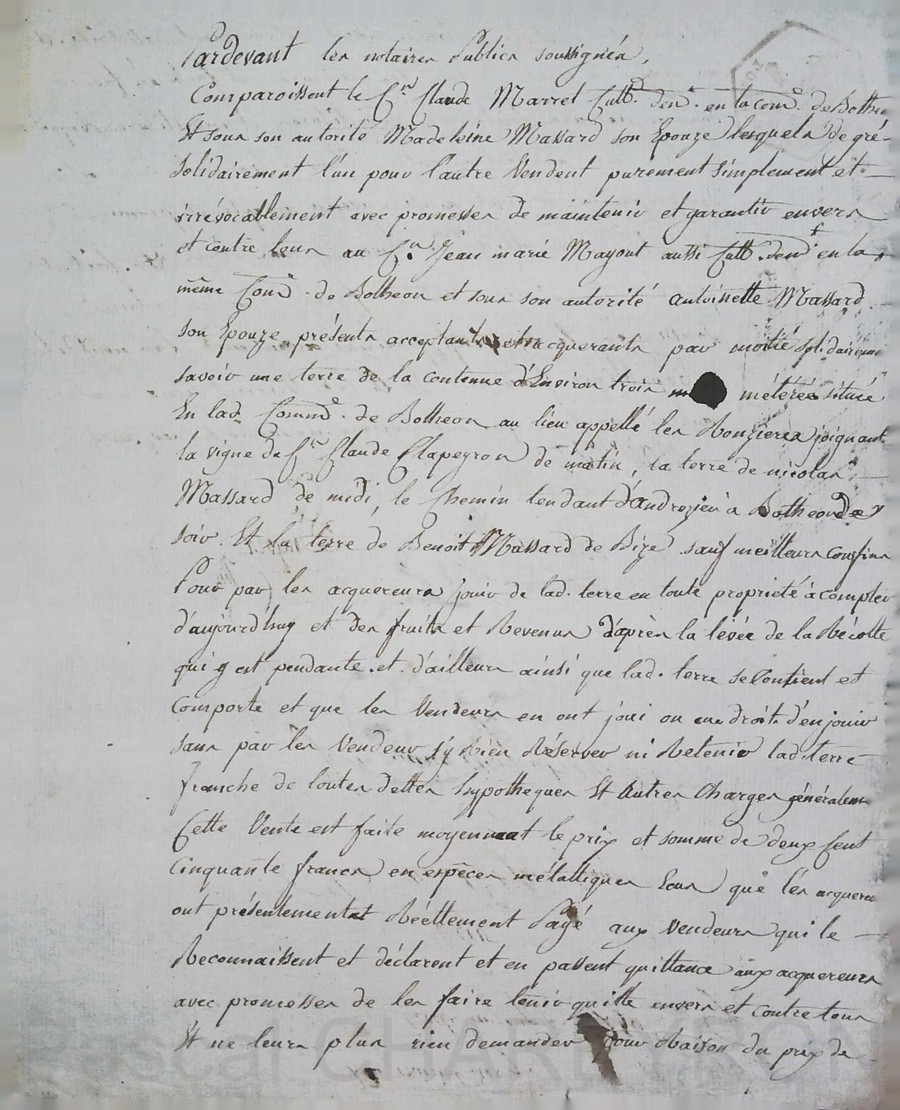 Pardevant les notaires Publics soussignés,
Comparoissent le C.en Claude Marret Cultr. demt. en la come. de Bothe
Et sous son autorité Madeleine Massard son Epouze lesquels de gré
solidairement l'un pour l'autre Vendent purement simplement et
irrévocablement avec promesses de maintenir et garantir envers
et contre tous au C.en Jean marie Mayout aussi Cultr. demt. en la
même Come. de Botheon et sous son autorité antoinette Massard
son Epouze présents acceptants et acquerants par moitié solidairemt
savoir une terre de la contenue d'Environ trois métérée située
En lad. Comme. de Botheon au lieu appellé les Ronzieres joignant
la vigne du C.en Claude Clapeyron de matin, la terre de nicolas
Massard de midi, le Chemin tendant d'andrezieu à Botheon de
soir Et la terre de Benoit Massard de Bize sauf meilleurs confins
Pour par les acquereurs jouir de lad. terre en toute propriété à compter
d'aujourd'huy et des fruits et Revenus d'après la levée de la Récolte
qui y est pendante et d'ailleurs ainsi que lad. terre se Contient et
Comporte et que les Vendeurs en ont joui ou eu droit d'en jouir
sans par les Vendeur s'y Rien Réserver ni Retenir lad. terre
franche de toutes dettes hypotheques Et Autres Charges généralemt
Cette Vente est faite moyennant le prix et somme de deux Cent
Cinquante francs en espèces métalliques sous que les acquereurs
ont présentement Réellement Payé aux Vendeurs qui le
Reconnaissent et déclarent et en passent quittance aux acquereurs
avec promesses de les faire tenir quitte envers et contre tous
Et ne leurs plus rien demander pour Raison du prix de